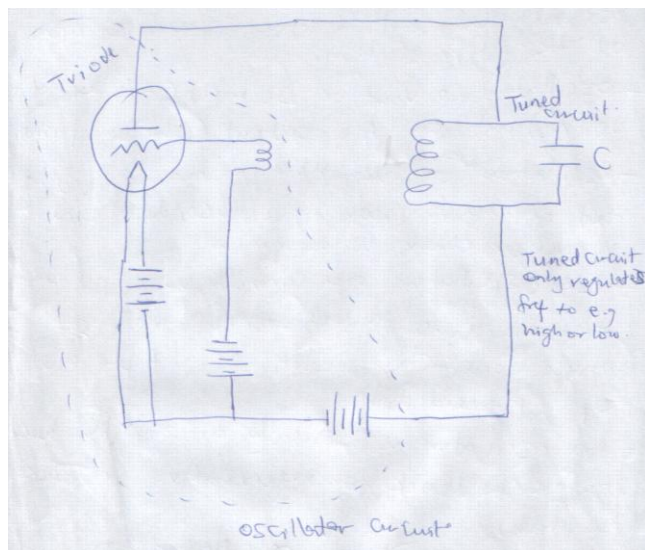 Triode
Tuned
circuit.
C
Tuned circuit
only regulates
frq to e.g
high or low.
oscillator circuit